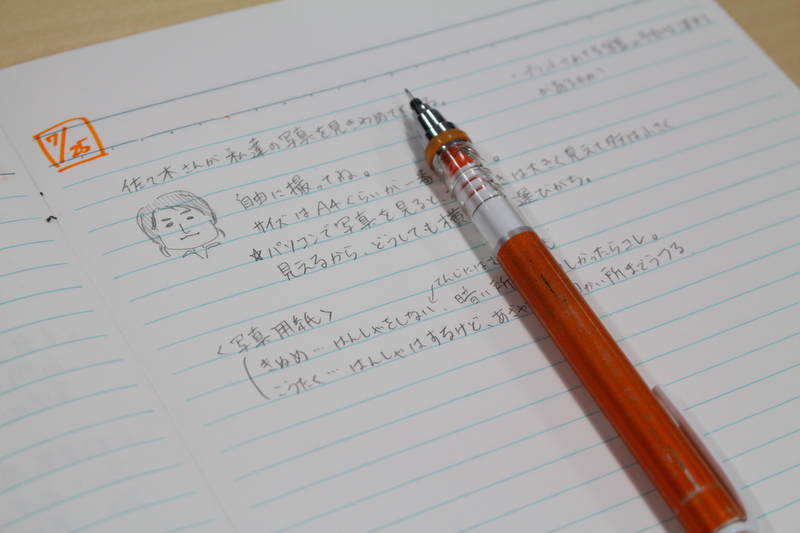 7/25
佐々木さんが私達の写真を見きわめて
自由に撮ってね。
サイズはA4くらいが一番
☆パソコンで写真を見ると、は大きく見えてタテは小さく
見えるから、どうしても横選びがち。
てんじには
<写真用紙>
きぬめ…はんしゃをしない、暗い所しかったらコレ。
こうたく…はんしゃはするけど、あざかい所までうつる